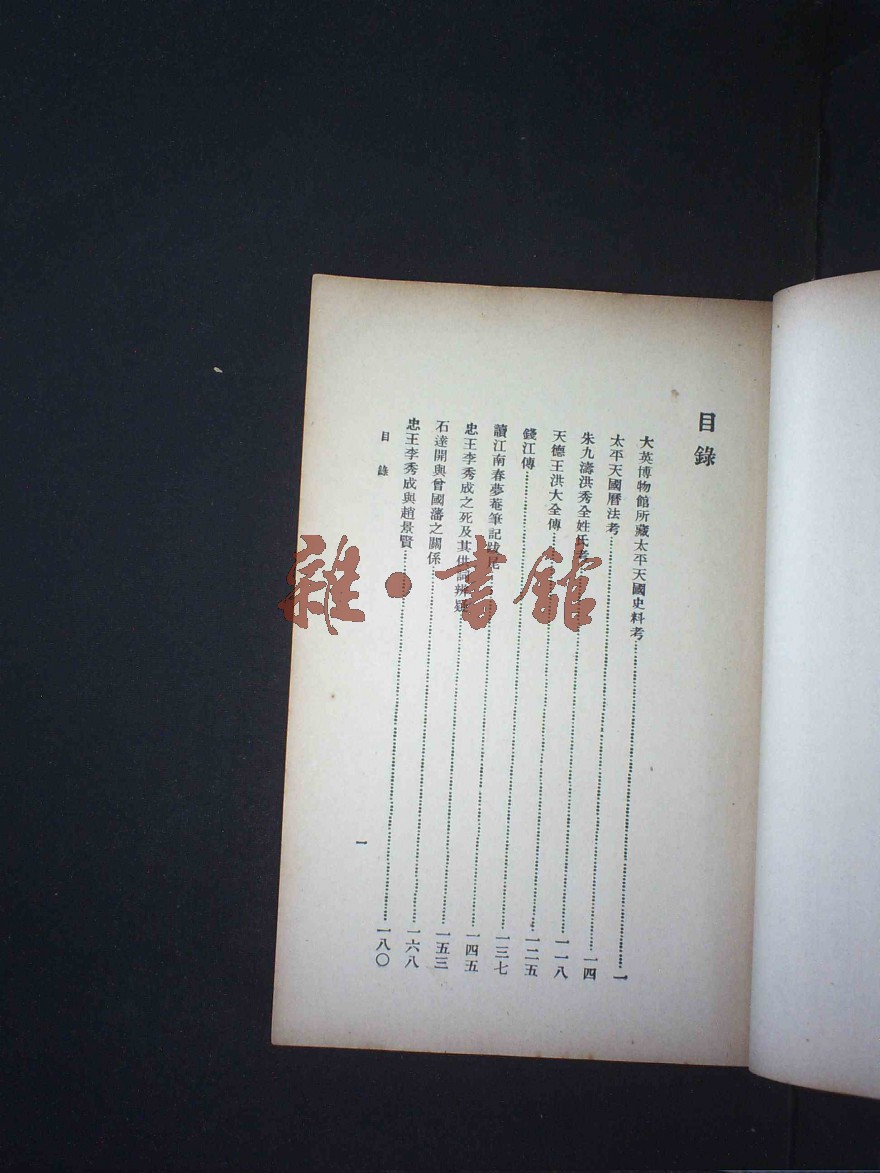 目錄
大英博物館所藏太平天國史料考……一
太平天國曆法考……一四
朱九濤洪秀全姓氏考……一一八
天德王洪大全傳……一二五
錢江傳……一三七
讀江南春夢菴筆記跋尾……一四五
忠王李秀成之死及其供詞辨疑……一五三
石達開與曾國藩之關係……一六八
忠王李秀成與趙景賢……一八〇
目錄
一
雜·書館